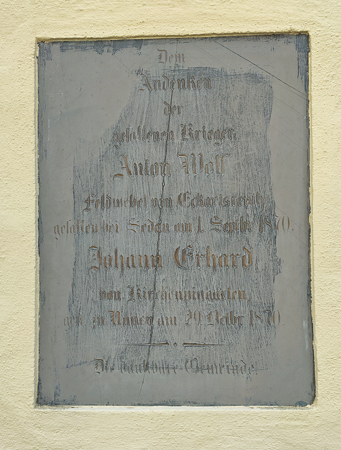 Dem
Andenken
der
gefallenen Krieger
Anton
Feldwebel von
gefallen bei Sedan am 1. Septbr 1870.
Johann Erhard,
von
gest. zu Nancy am 29. Octbr 1870
Die dankbare Gemeinde.